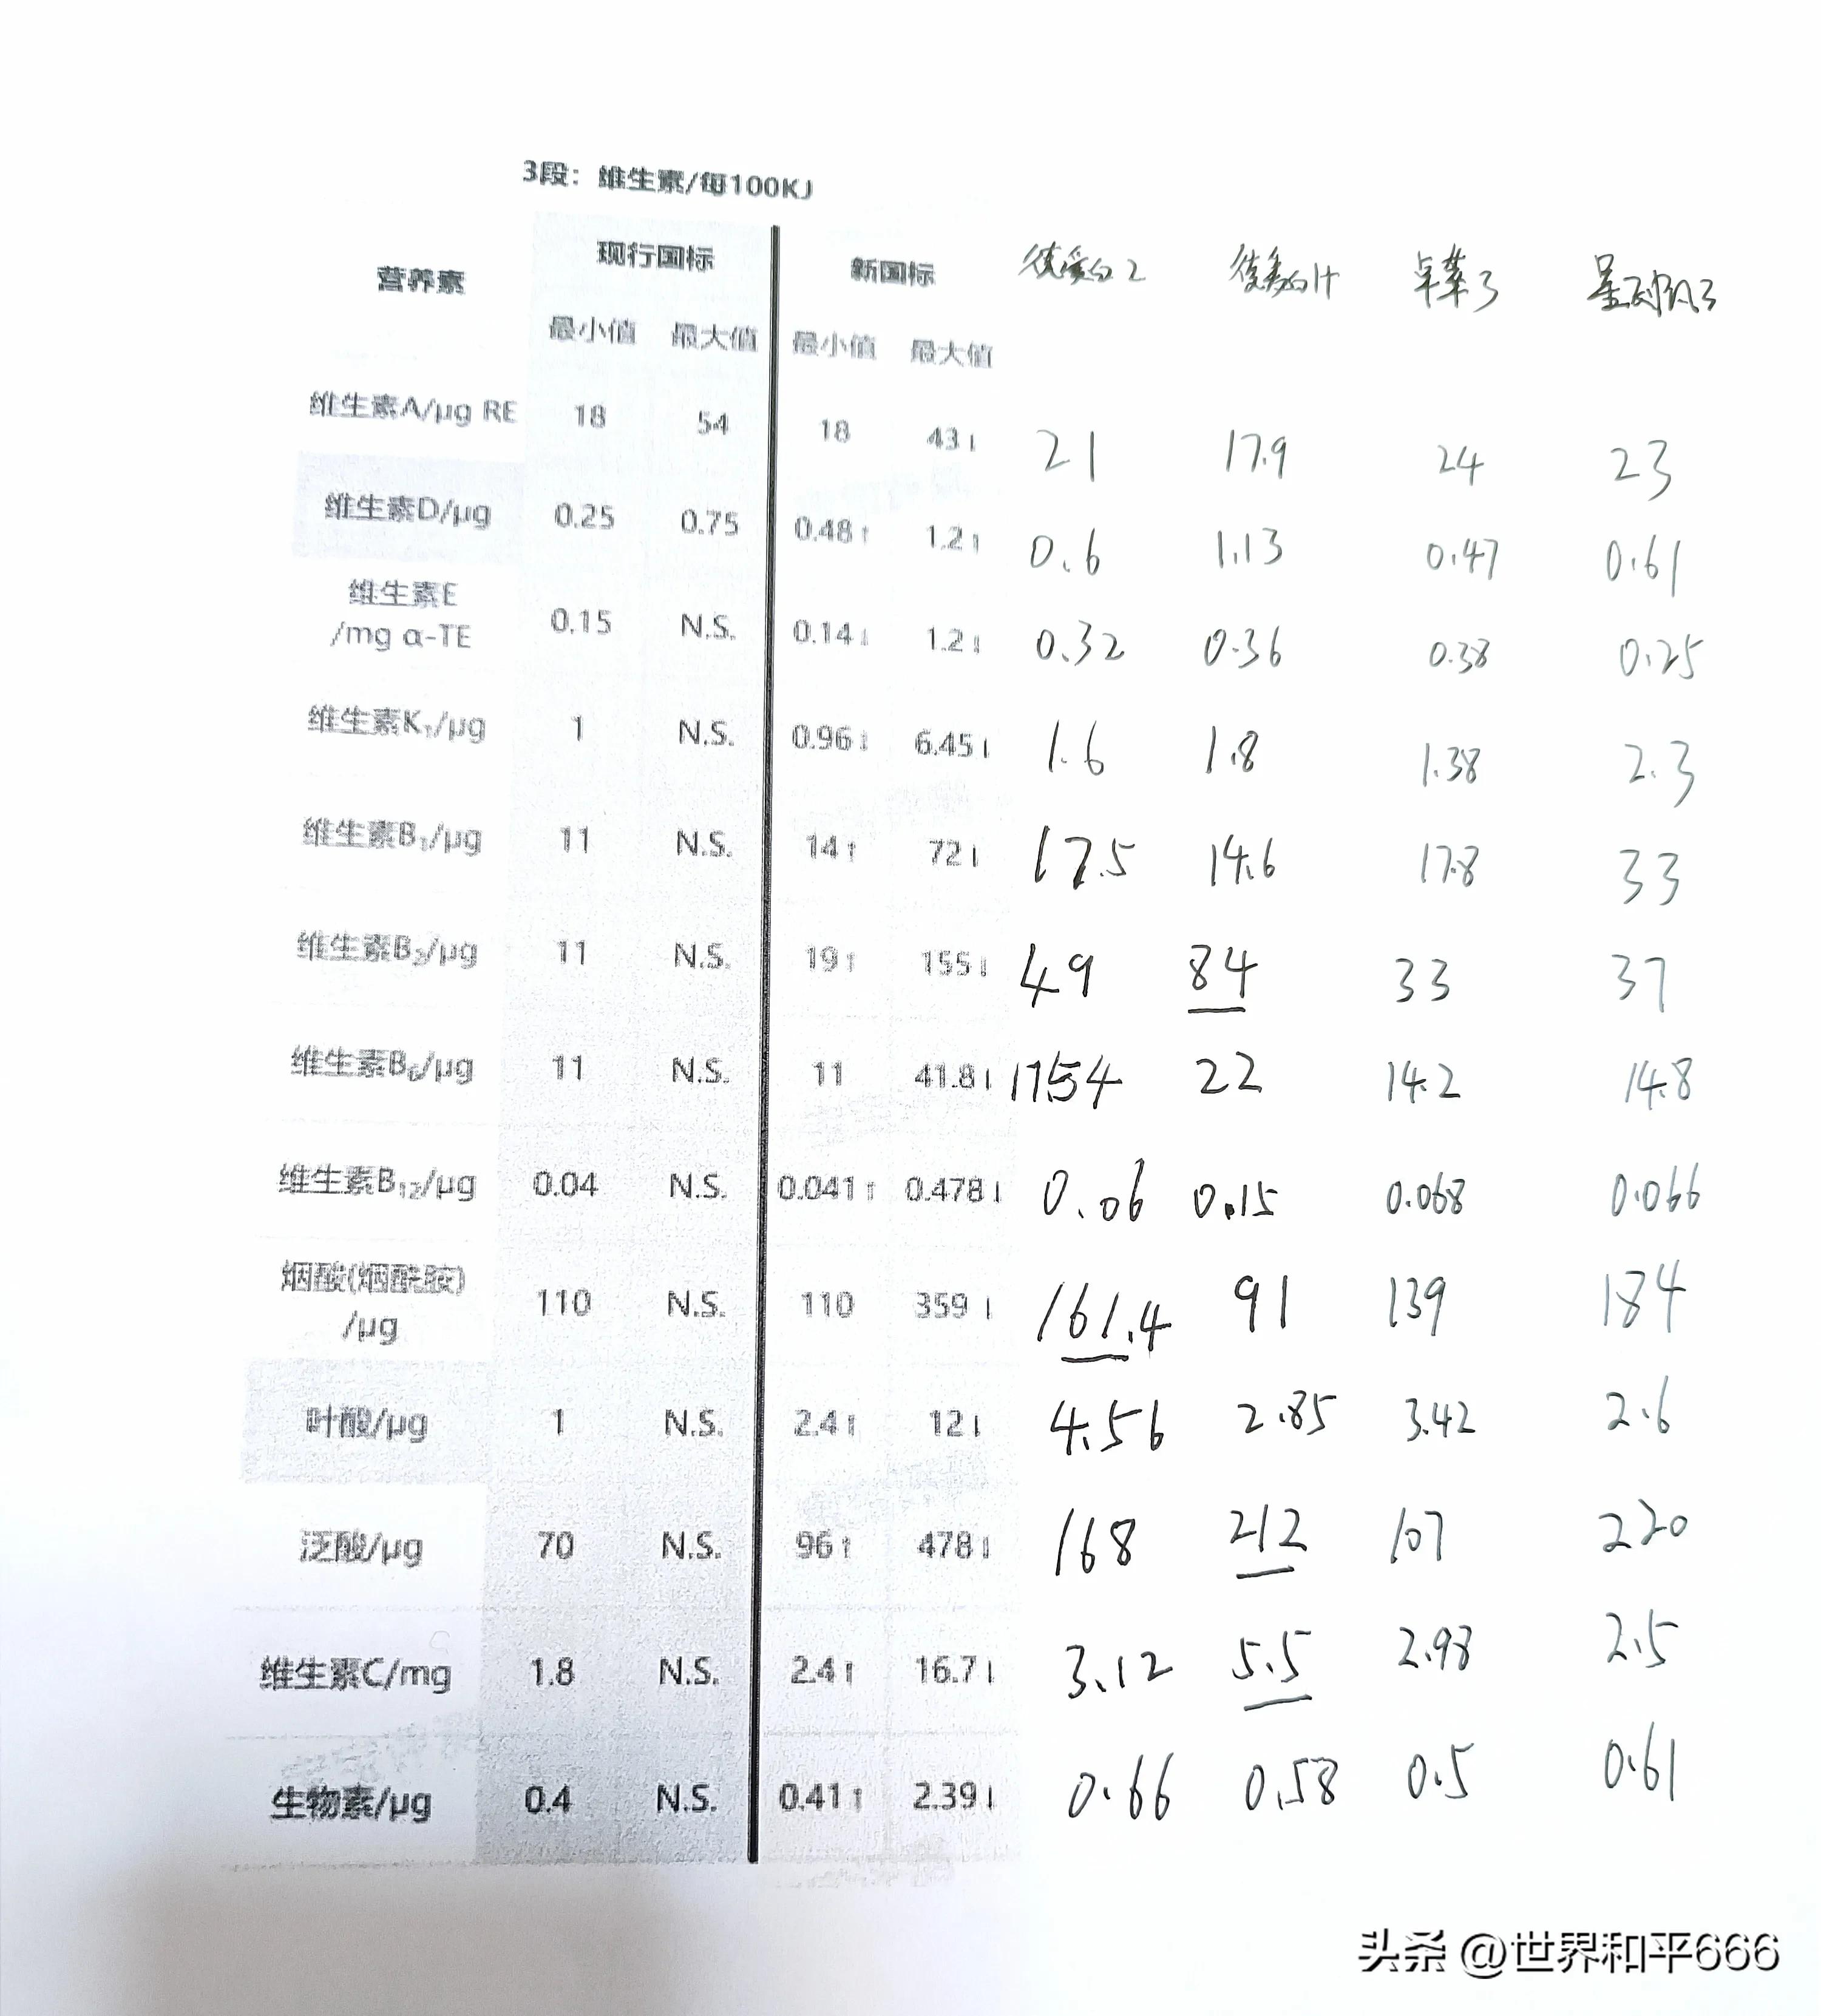 3段：维生素/每100KJ
营养素 现行国标 新国标 2 1+ 3 3
最小值 最大值 最小值 最大值
维生素A/μg RE 18 54 18 43↓ 21 17.9 24 23
维生素D/μg 0.25 0.75 0.48↑ 1.2↑ 0.6 1.13 0.47 0.61
维生素E
/mg α-TE 0.15 N.S. 0.14↓ 1.2↓ 0.32 0.36 0.38 0.25
维生素K₁/μg 1 N.S. 0.96↓ 6.45↓ 1.6 1.8 1.38 2.3
维生素B₁/μg 11 N.S. 14↑ 72↓ 17.5 14.6 17.8 33
维生素B₂/μg 11 N.S. 19↑ 155↓ 49 84 33 37
维生素B₆/μg 11 N.S. 11 41.8↓ 17.54 22 14.2 14.8
维生素B₁₂/μg 0.04 N.S. 0.041↑ 0.478↓ 0.06 0.15 0.068 0.066
烟酸(烟酰胺)
/μg 110 N.S. 110 359↓ 161.4 91 139 184
叶酸/μg 1 N.S. 2.4↑ 12↓ 4.56 2.85 3.42 2.6
泛酸/μg 70 N.S. 96↑ 478↓ 168 212 107 220
维生素C/mg 1.8 N.S. 2.4↑ 16.7↓ 3.12 5.5 2.98 2.5
生物素/μg 0.4 N.S. 0.41↑ 2.39↓ 0.66 0.58 0.5 0.61
头条 @世界和平666